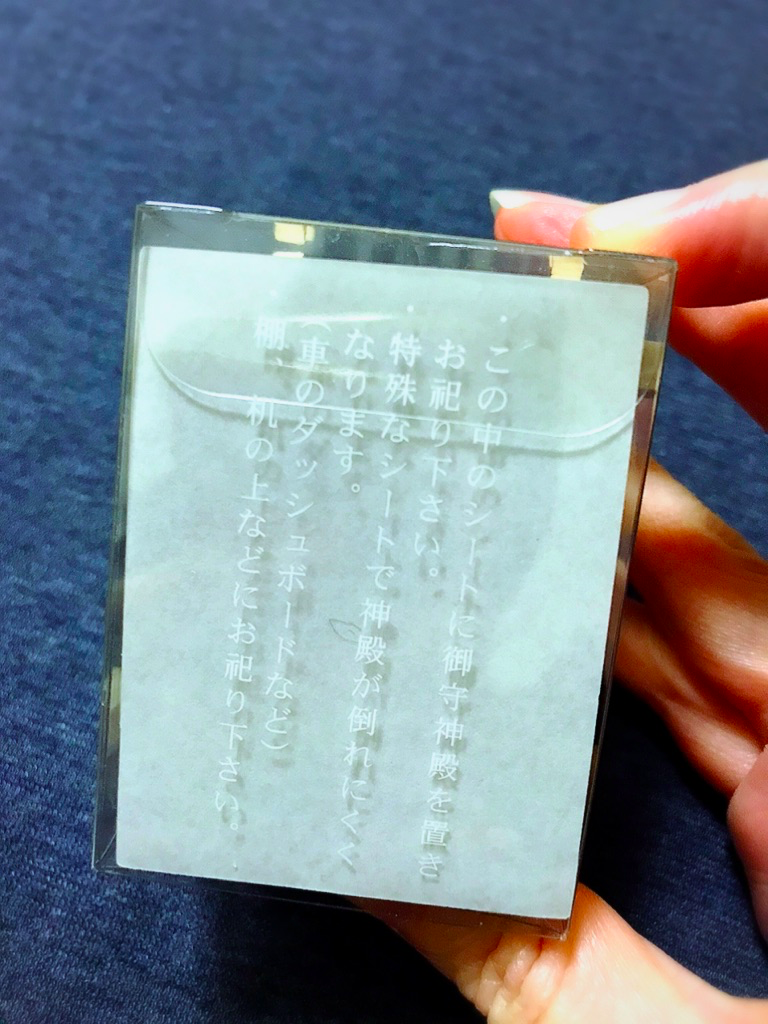 ・この中のシートに御守神殿を置き
お祀り下さい。
・特殊なシートで神殿が倒れにくく
なります。
（車のダッシュボードなど）
・棚、机の上などにお祀り下さい。